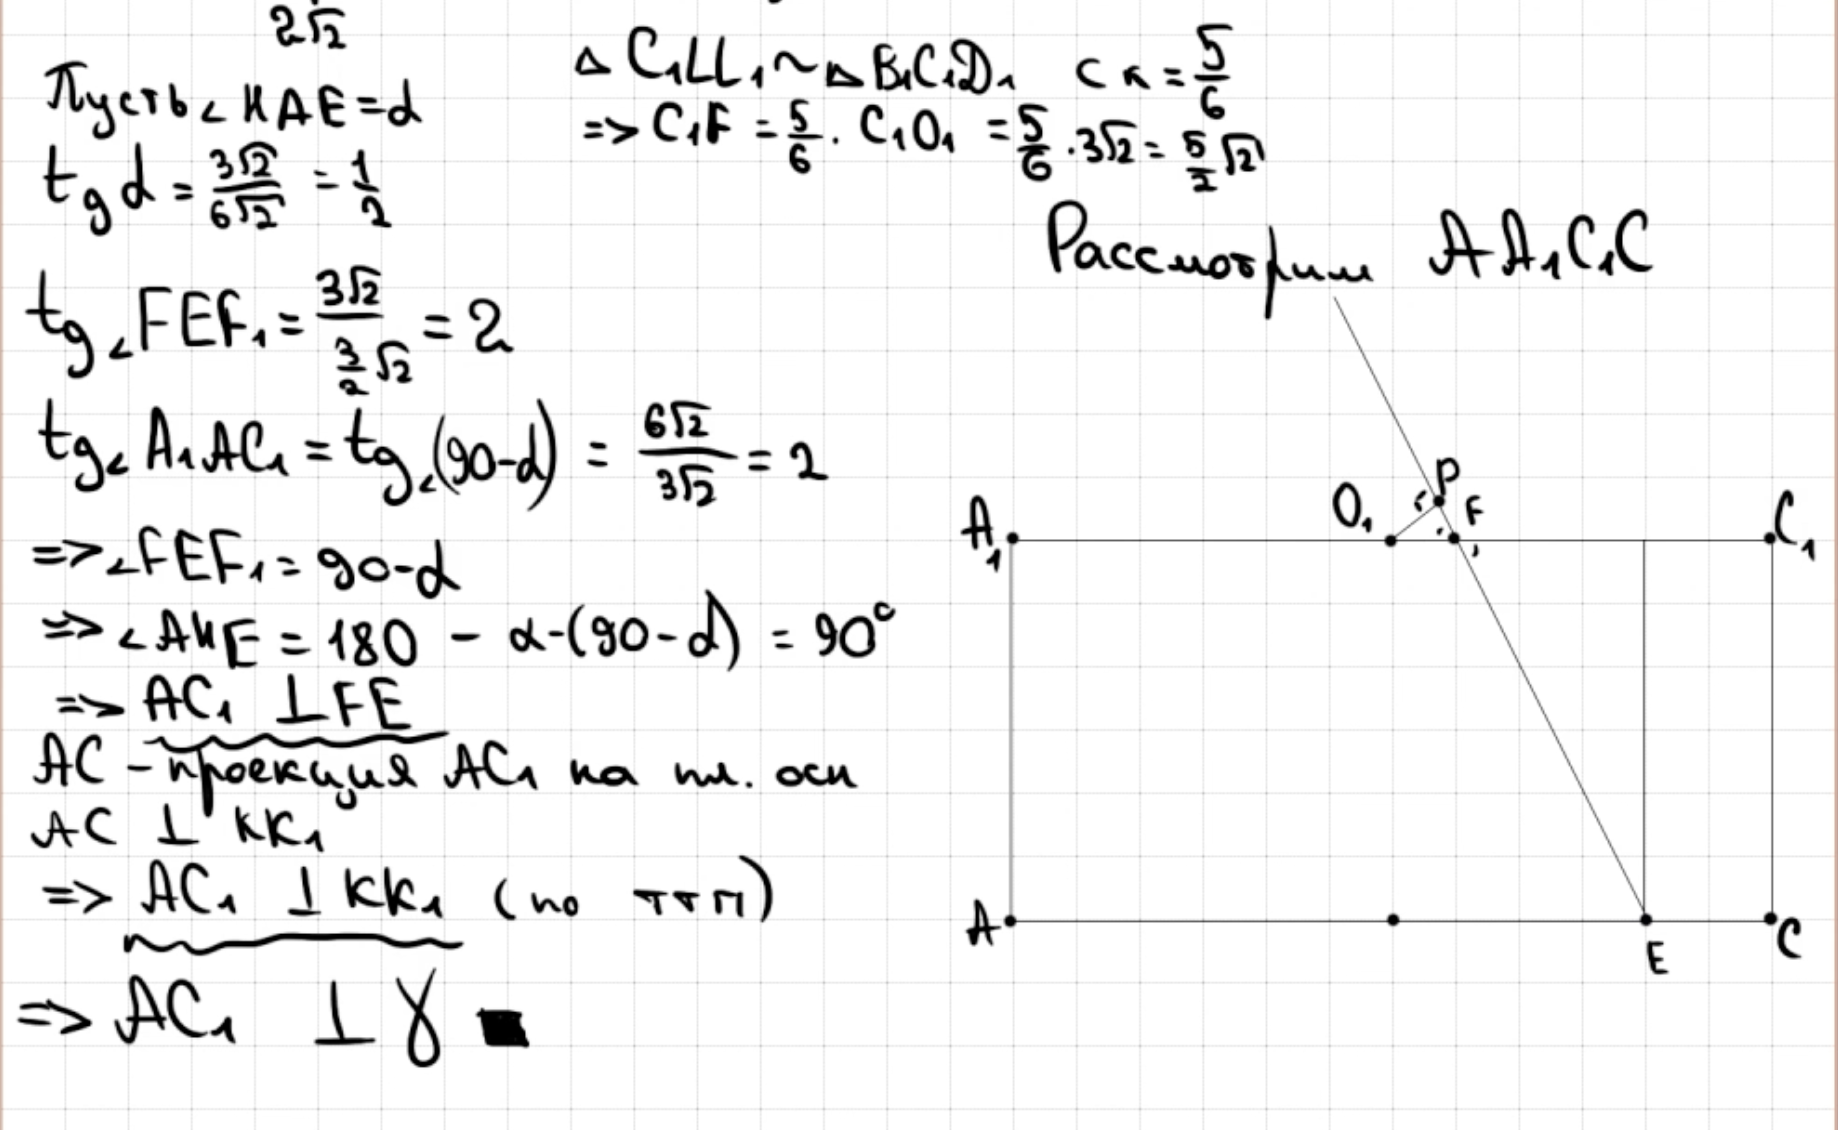 2√2
Пусть ∠HAE = α
tg α = 3√2/6√2 = 1/2
tg∠FEF₁ = 3√2 / (3/2 √2) = 2
tg∠A₁AC₁ = tg∠(90-α) = 6√2/3√2 = 2
=> ∠FEF₁ = 90-α
=> ∠AHE = 180 - α-(90-α) = 90°
=> AC₁ ⊥ FE
AC - проекция AC₁ на пл. осн
AC ⊥ KK₁
=> AC₁ ⊥ KK₁ (по ттп)
=> AC₁ ⊥ γ ■
△ C₁LL₁ ~ △ B₁C₁D₁ с к = 5/6
=> C₁F = 5/6 · C₁O₁ = 5/6 · 3√2 = 5/2 √2
Рассмотрим AA₁C₁C
P
O₁
F
A₁
C₁
A
E
C